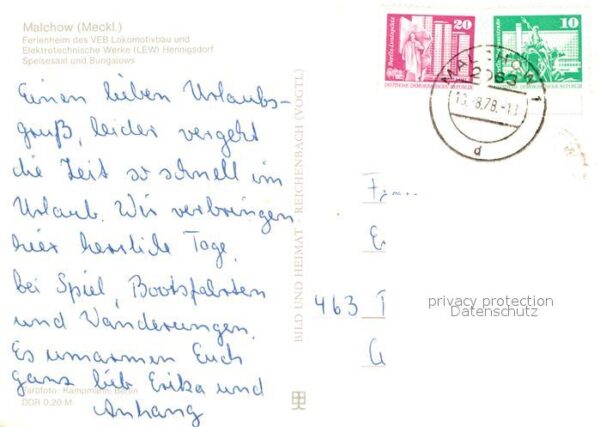 Malchow (Meckl.)
Ferienheim des VEB Lokomotivbau und
Elektrotechnische Werke (LEW) Hennigsdorf
Speisesaal und Bungalows
Einen lieben Urlaubs-
gruß, leider vergeht
die Zeit so schnell im
Urlaub. Wir verbringen
hier herrliche Tage
bei Spiel, Bootsfahrten
und Wanderungen.
Es umarmen Euch
ganz lieb Erika und
Anhang
Farbfoto: Kampmann, Berlin
DDR 0,20 M
BILD UND HEIMAT · REICHENBACH (VOGTL)
20
DEUTSCHE DEMOKRATISCHE REPUBLIK
10
DEUTSCHE DEMOKRATISCHE REPUBLIK
MALCHOW 1
2063
d
463
privacy protection
Datenschutz